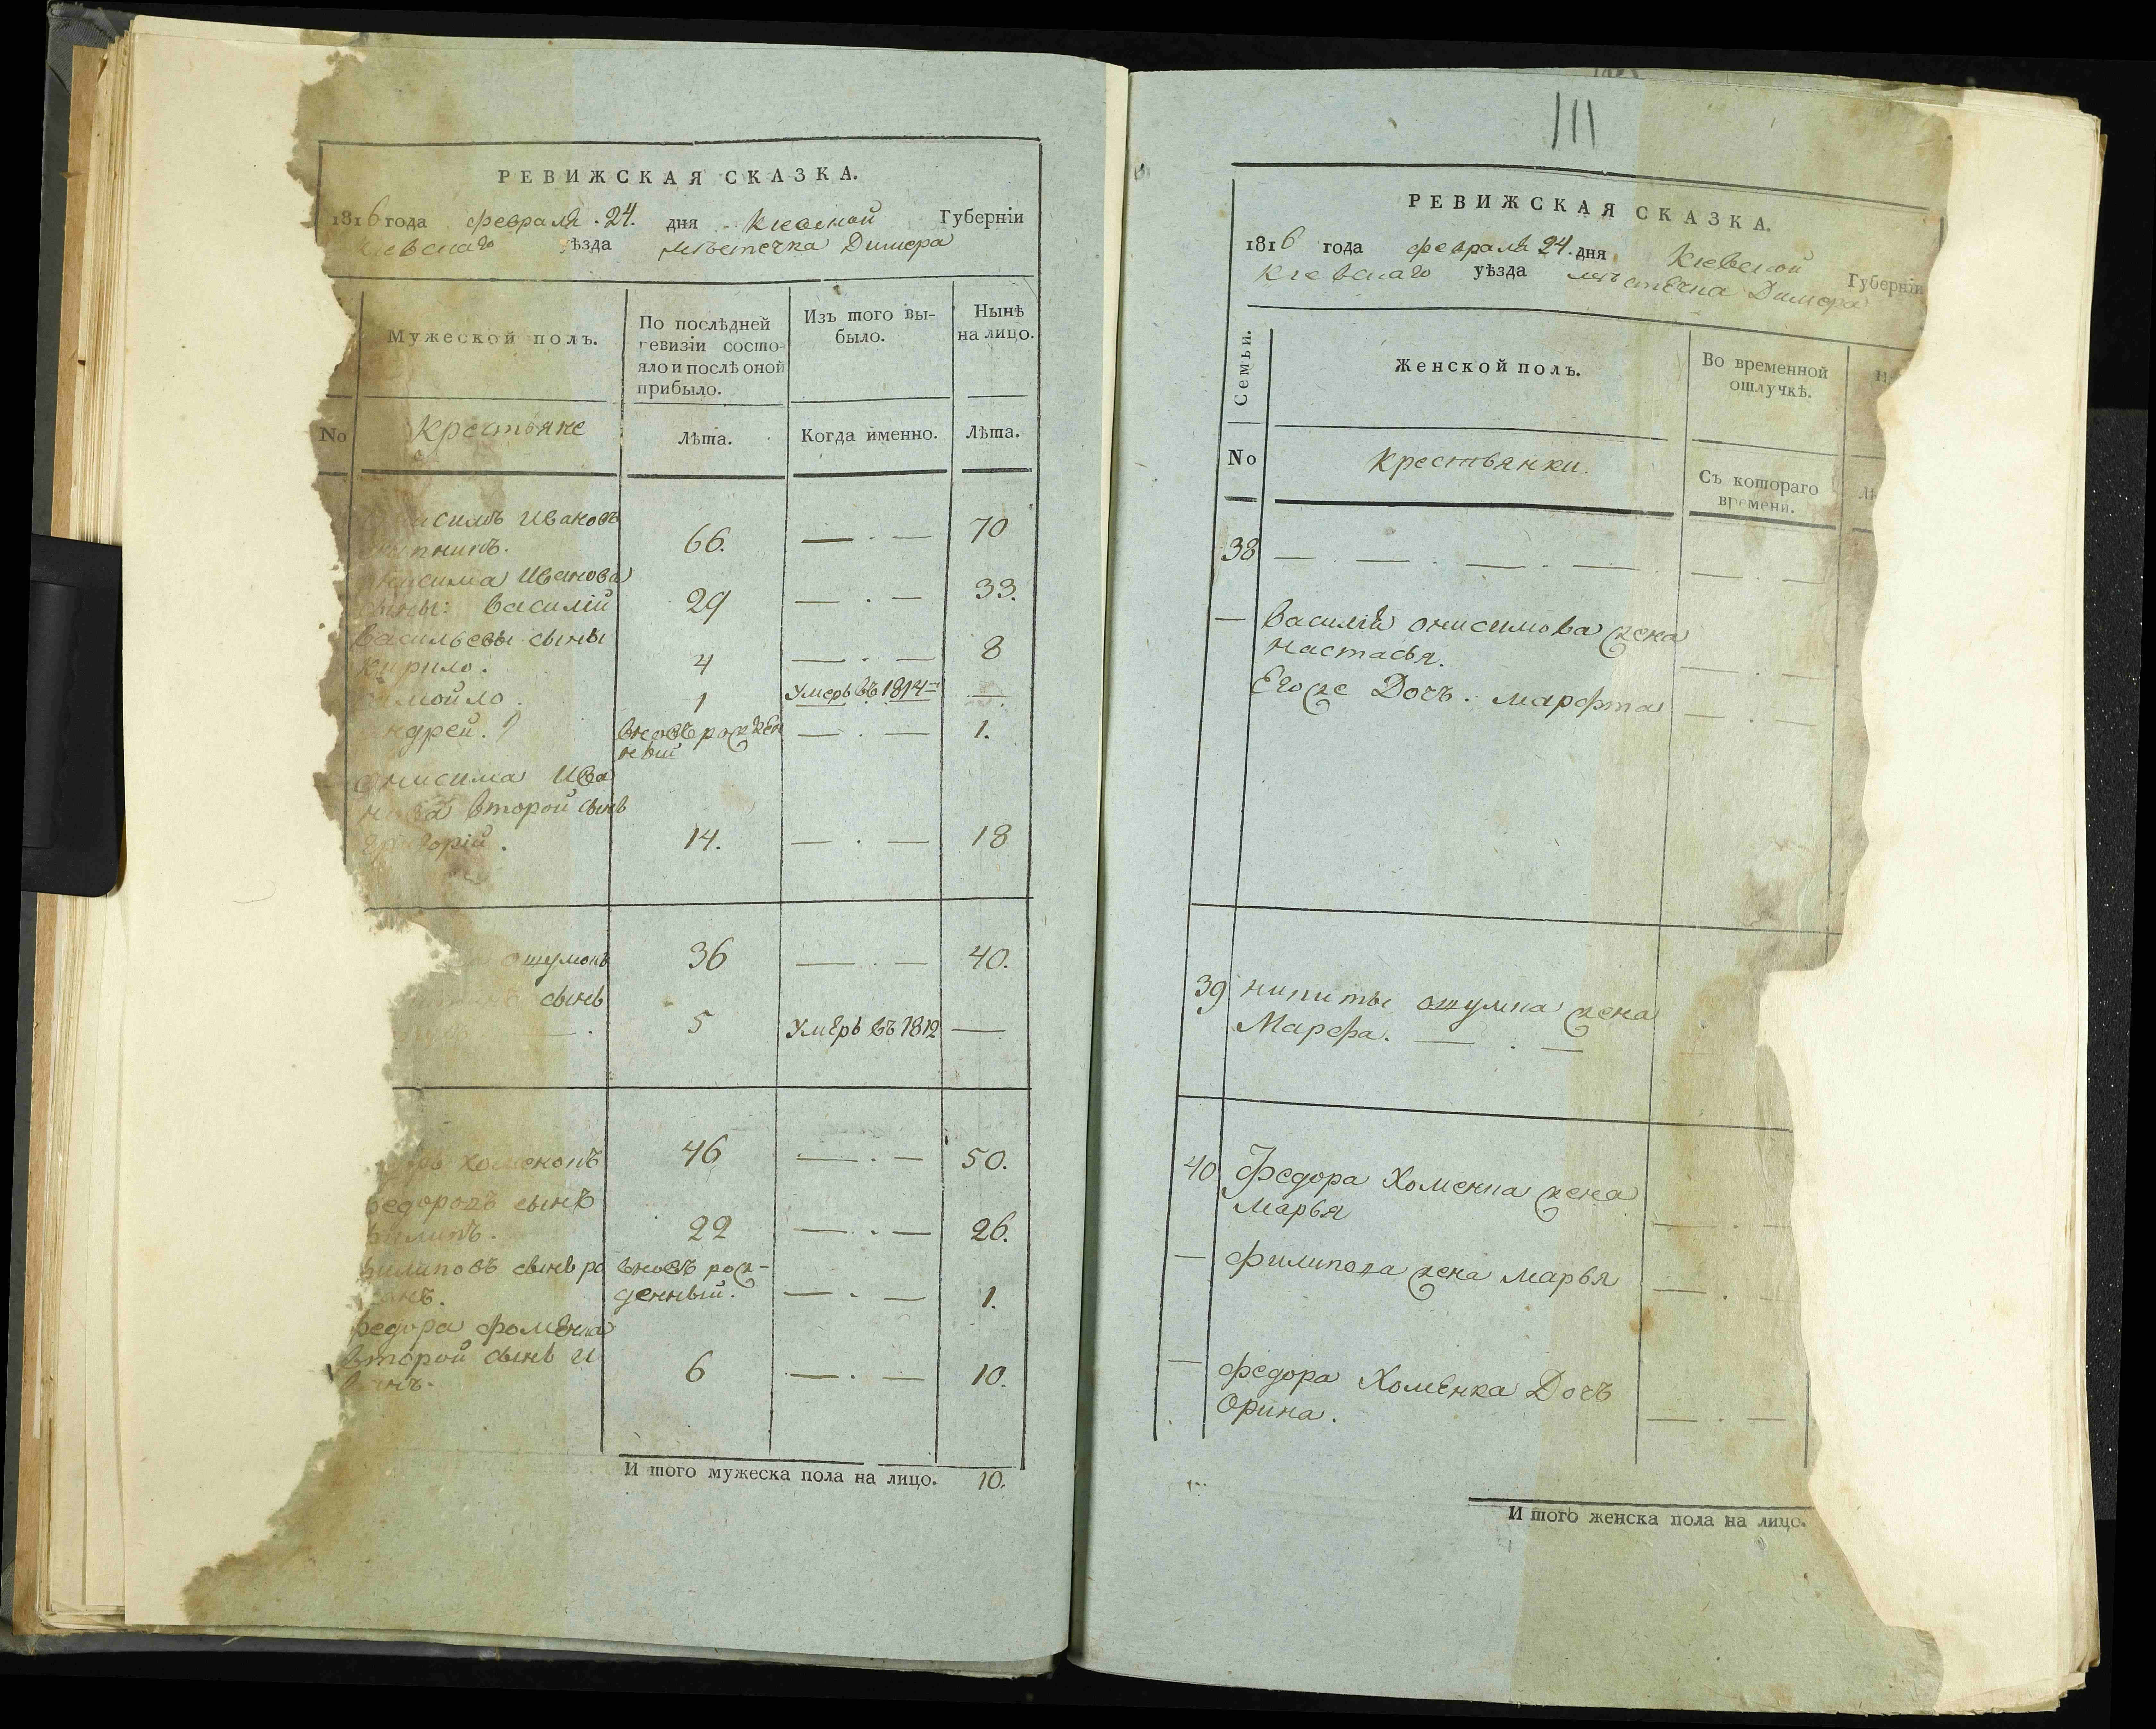 РЕВИЖСКАЯ СКАЗКА.
1816 года февраля 24. дня Киевской Губерніи
Киевскаго уѣзда мѣстечка Димера
Мужеской полъ.
По послѣдней ревизіи состояло и послѣ оной прибыло.
Изъ того выбыло.
Нынѣ на лицо.
No
Крестьяне
Лѣта.
Когда именно.
Лѣта.
Ивановъ
66. — . — 70
Иванова
сыны: Василій 29 — . — 33.
Васильевы сыны
Кирило. 4 — . — 8
Самойло. 1 Умеръ въ 1814 —
Андрей. вновь рожден
ный — . — 1.
Онисима Ива
нова второй сынъ
Григорій. 14. — . — 18
ошумокъ 36 — . — 40.
сынъ
5 Умеръ въ 1812 —
Хоменокъ 46 — . — 50.
Федоровъ сынъ
Филипъ. 22 — . — 26.
Филиповъ сынъ ро вновь рож-
манъ. денный. — . — 1.
Федора Фоменка
второй сынъ И
ванъ. 6 — . — 10.
И того мужеска пола на лицо. 10.
111
РЕВИЖСКАЯ СКАЗКА.
1816 года февраля 24. дня Киевской Губерніи
Киевскаго уѣзда мѣстечка Димера
Семьи.
Женской полъ.
Во временной отлучкѣ.
No
Крестьянки.
Съ котораго времени.
38 — . — . — . — . — . —
— Василія онисимова жена
Настасья. — . —
Его же Дочь. марфта — . —
39 никиты ошумка жена
Марфа. — . —
40 Федора Хоменка жена
Марья — . —
— Филипова жена марья — . —
— Федора Хоменка Дочь
Орина. — . —
И того женска пола на лицо.